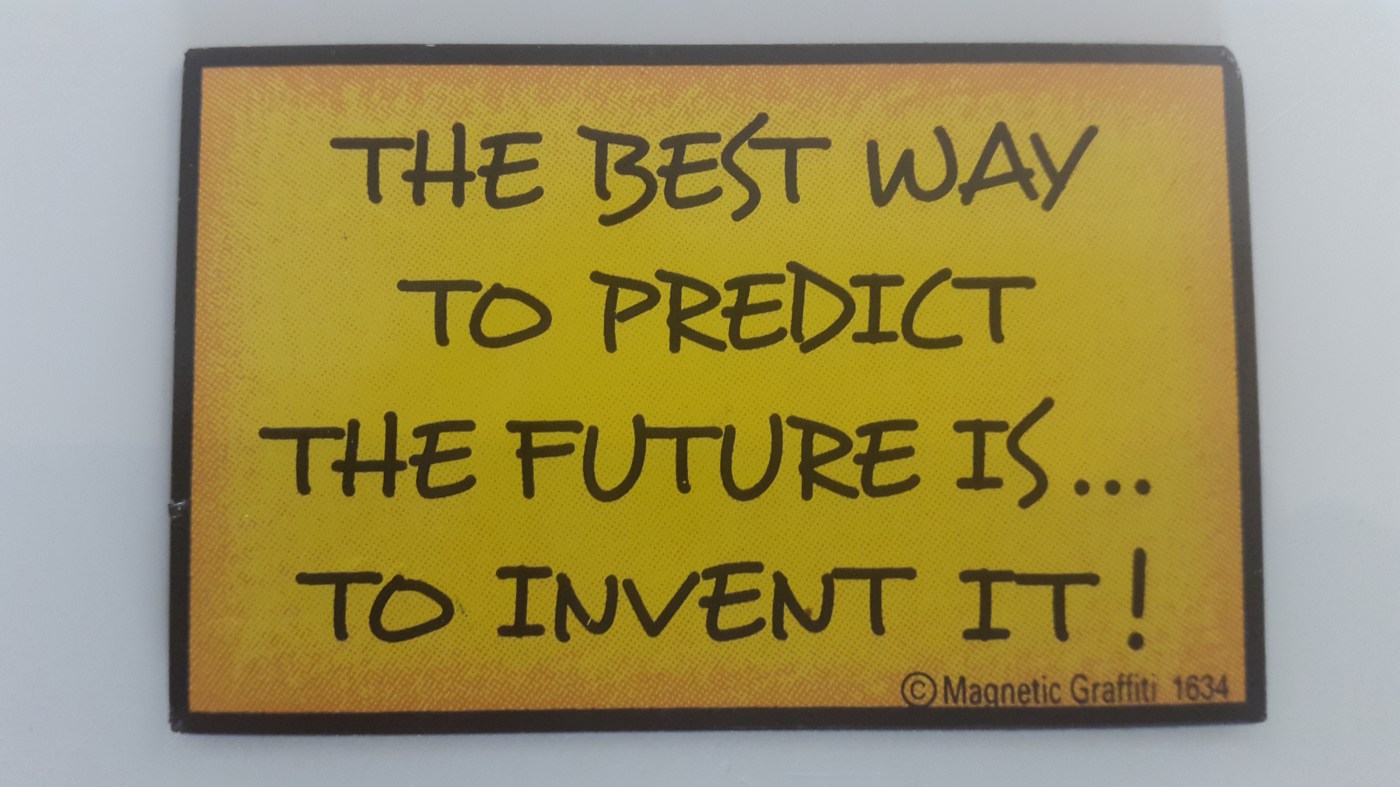 THE BEST WAY
TO PREDICT
THE FUTURE IS...
TO INVENT IT!
© Magnetic Graffiti 1634